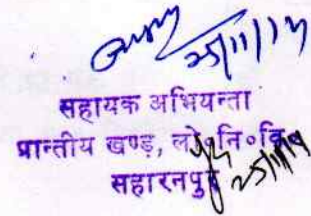 25/11/14
सहायक अभियन्ता
प्रान्तीय खण्ड, लो०नि०वि०
सहारनपुर